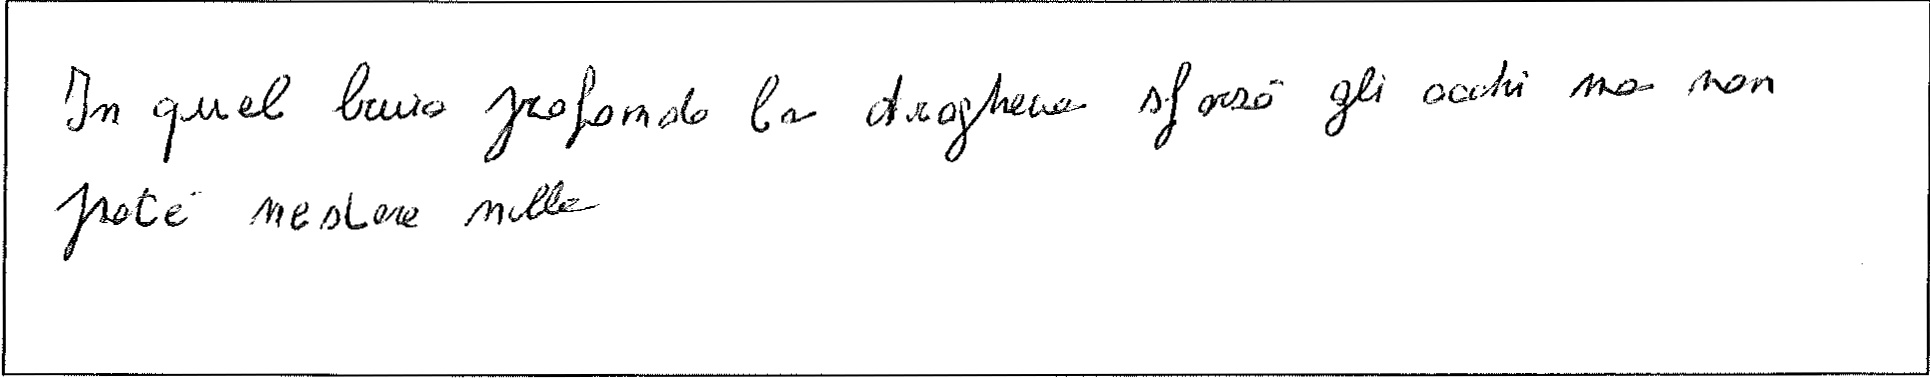 In quel buio profondo la droghiera sforzò gli occhi ma non
poté vedere nulla